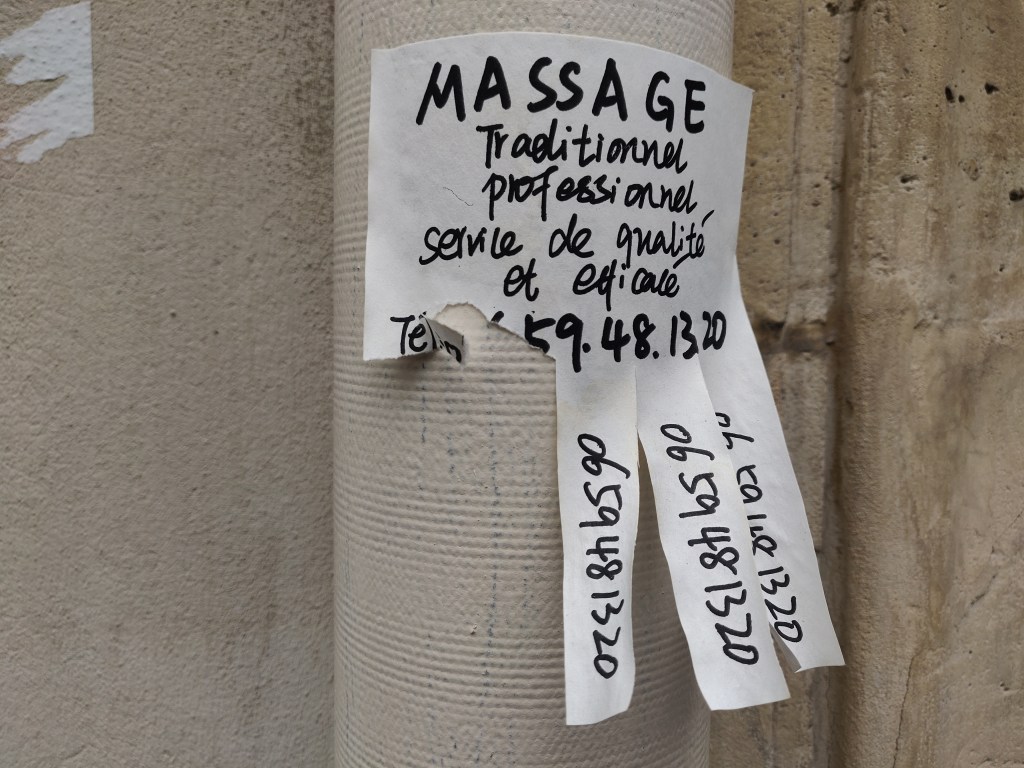 MASSAGE
Traditionnel
professionnel,
service de qualité
et efficacé
Tél 59.48.1320
0659481320
0659481320
1320